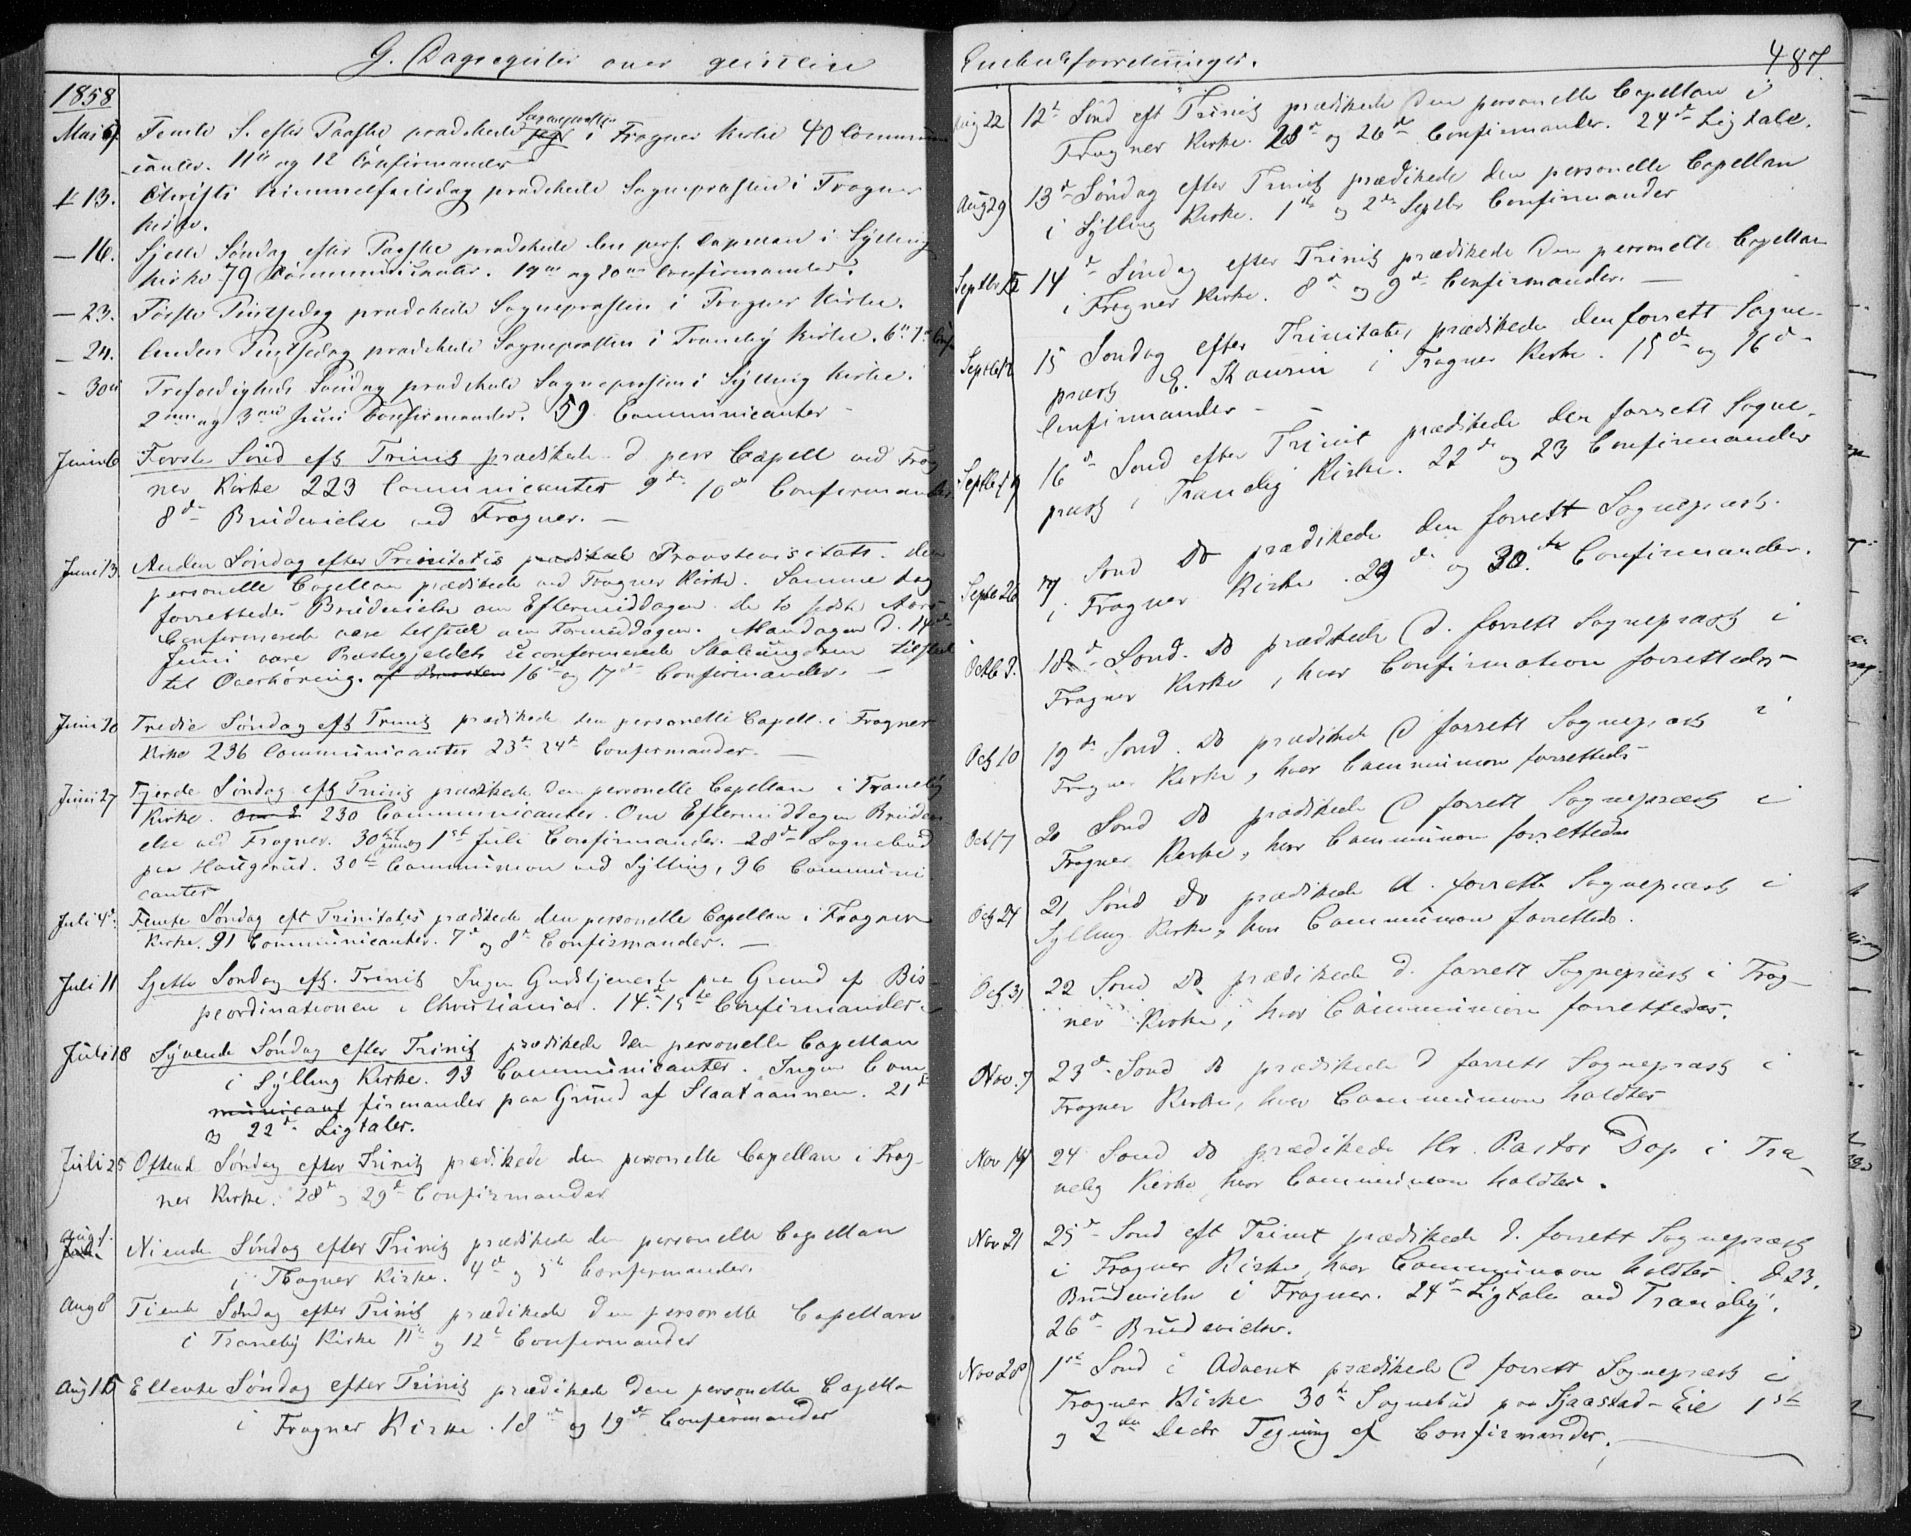 G. Dagregister over geistlige
1858
Mai 9. Femte S. efter Paaske prædikede Sognepræsten i Frogner Kirke 40 Commun
icanter. 11te og 12 Confirmander
" 13. Christi Himmelfartsdag prædikede Sognepræsten i Frogner
Kirke.
— 16. Sjette Søndag efter Paaske prædikede den pers. Capellan i Sylling
Kirke 79 Communicanter. 19de og 20de Confirmander.
— 23. Første Pintsedag prædikede Sognepræsten i Frogner Kirke.
— 24. Anden Pintsedag prædikede Sognepræsten i Traneby Kirke.
- 30te Trefoldigheds Søndag prædikede Sognepræsten i Sylling Kirke.
2den og 3die Juni Confirmander. 59 Communicanter -
Juni 6 Første Sönd eft Trinit prædikede d. pers Capell ved Frog
ner Kirke 223 Communicanter 9de 10de Confirmander
8de Brudevielse ved Frogner. —
Juni 13. Anden Søndag efter Trinitatis prædikede Provstevisitats. den
personelle Capellan prædikede ved Frogner Kirke. Samme dag
forrettedes Brudevielse om Eftermiddagen. de to sidste Aars
Confirmerede vare tilstede om Formiddagen. Mandagen d. 14de
Juni vare Præstegjeldets uconfirmerede Skoleungdom tilstede
til Overhöring. af Provsten 16de og 17de Confirmander. —
Juni 20 Tredie Søndag eft Trinit prædikede den personelle Capell. i Frogner
Kirke 236 Communicanter 23de 24de Confirmander. —
Juni 27 Fjerde Søndag eft Trinit prædikede den personelle Capellan i Traneby
Kirke. 230 Communicanter. Om Eftermiddagen Brudevi
else ved Frogner. 30te Juni og 1ste Juli Confirmander. 28de Sognebud
paa Haugerud. 30te Communion ved Sylling, 96 Communi
canter
Juli 4de. Femte Søndag eft Trinitatis prædikede den personelle Capellan i Frogner
Kirke. 91 Communicanter. 7de og 8de Confirmander. —
Juli 11 Sjette Søndag eft. Trinit Ingen Gudstjeneste paa Grund af Bis-
peordinationen i Christiania. 14de 15de Confirmander
Juli 18 Syvende Søndag efter Trinit prædikede den personelle Capellan
i Sylling Kirke. 93 Communicanter. Ingen Con
municant firmander paa Grund af Slaataannen. 21de
og 22de Ligtaler.
Juli 25 Ottend Søndag efter Trinit prædikede den personelle Capellan i Frog-
ner Kirke. 28de og 29de Confirmander
Aug 1. Niende Søndag efter Trinit prædikede den personelle Capellan
i Frogner Kirke. 4de og 5te Confirmander.
Aug 8 Tiende Søndag efter Trinit prædikede den personelle Capellan
i Traneby Kirke 11te og 12te Confirmander
Aug 15 Ellevte Søndag efter Trinit prædikede den personelle Capella
i Frogner Kirke. 18de og 19de Confirmander
Embedsforretninger. 487.
Aug 22 12te Sönd eft Trinit prædikede den personelle Capellan i
Frogner Kirke. 25de og 26de Confirmander. 24de Ligtale.
Aug 29 13de Søndag efter Trinit prædikede den personelle Capellan
i Sylling Kirke. 1ste og 2den Septbr Confirmander
Septbr 5 14de Søndag efter Trinit prædikede den personelle Capellan
i Frogner Kirke. 8de og 9de Confirmander. —
Septbr 12 15 Søndag efter Trinitates prædikede den forrett Sogne-
præst E. Kaurin i Frogner Kirke. 15de og 16de
Confirmander - -
Septbr 19 16de Sond efter Trinit prædikede den forrett Sogne-
præst i Tranebÿ Kirke. 22de og 23 Confirmander
Septbr 26 17 Sond Do prædikede den forrett Sognepræst.
i Frogner Kirke. 29de og 30te Confirmander.
Octb 3. 18de Sond. Do prædikede d. forrett Sognepræst i
Frogner Kirke, hvor Confirmation forrettedes
Oct 10 19de Sond. Do prædikede d forrett Sognepræst i
Frogner Kirke, hvor Communion forrettedes
Oct 17 20 Sond Do prædikede d forrett Sognepræst i
Frogner Kirke, hvor Communion forrettedes
Oct 24 21 Sönd Do prædikede d. forrett Sognepræst i
Sylling Kirke, hvor Communion forrettedes.
Oct 31 22 Sond Do prædikede d. forrett Sognepræst i Frog-
ner Kirke, hvor Communion forrettedes.
Nov. 7 23de Sond Do prædikede d forrett Sognepræst i
Frogner Kirke, hvor Communion holdtes
Nov 14 24 Sond Do prædikede Hr. Pastor Dop i Tra-
neby Kirke, hvor Communion holdtes.
Nov 21 25de Sond eft Trinit prædikede d. forrett Sognepræst
i Frogner Kirke, hvor Communion holdtes. d 23.
Brudevielse i Frogner. 24de Ligtale ved Tranebÿ.
26de Brudevielse.
Nov 28 1ste Sond i Advent prædikede d forrett Sognepræst i
Frogner Kirke 30te Sognebud paa Sjaastad-Eie 1ste
og 2den Decbr Tegning af Confirmander.